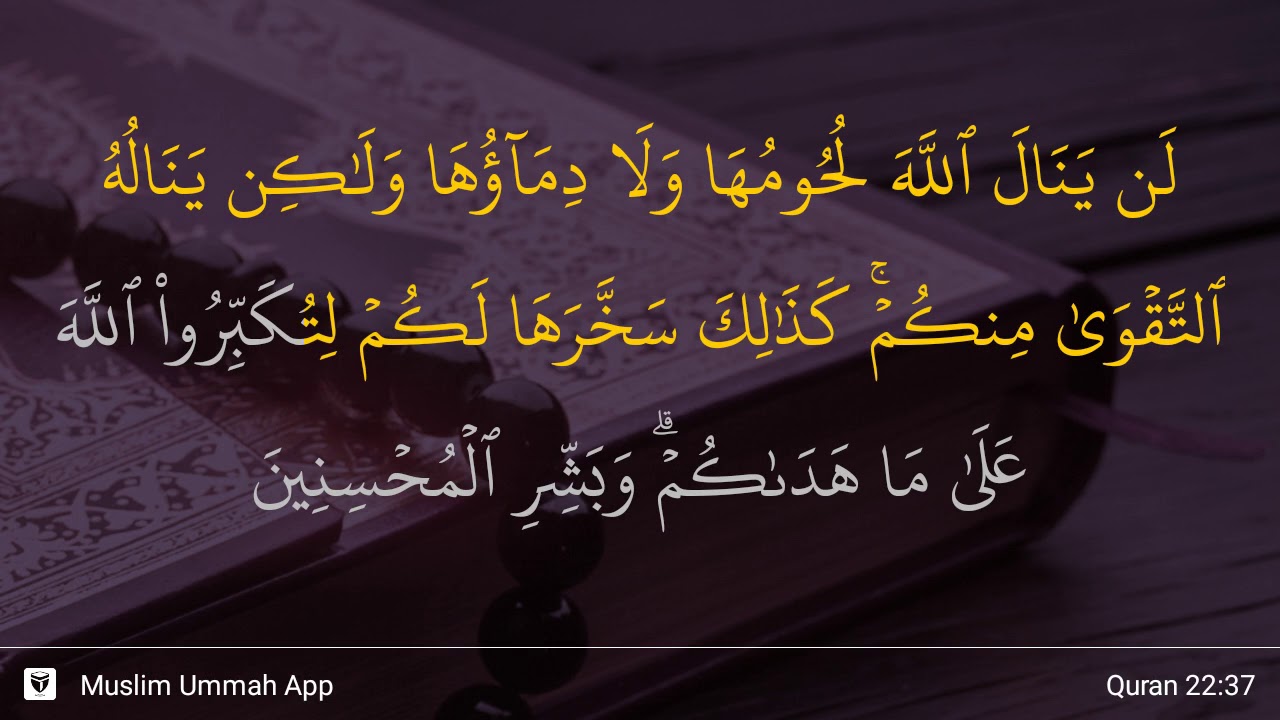 لَن يَنَالَ ٱللَّهَ لُحُومُهَا وَلَا دِمَآؤُهَا وَلَـٰكِن يَنَالُهُ
ٱلتَّقْوَىٰ مِنكُمْ ۚ كَذَٰلِكَ سَخَّرَهَا لَكُمْ لِتُكَبِّرُوا۟ ٱللَّهَ
عَلَىٰ مَا هَدَىٰكُمْ ۗ وَبَشِّرِ ٱلْمُحْسِنِينَ
Muslim Ummah App
Quran 22:37